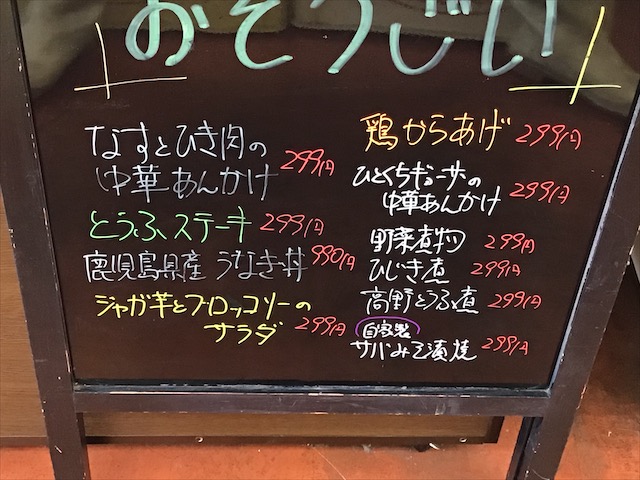 おそうじい
なすとひき肉の
中華あんかけ 299円
とうふステーキ 299円
鹿児島県産 うなぎ丼 990円
ジャガ芋とブロッコリーの
サラダ 299円
鶏からあげ 299円
ひとくちギョーザの
中華あんかけ 299円
野菜煮物 299円
ひじき煮 299円
高野とうふ煮 299円
自家製
サバみそ漬焼 299円